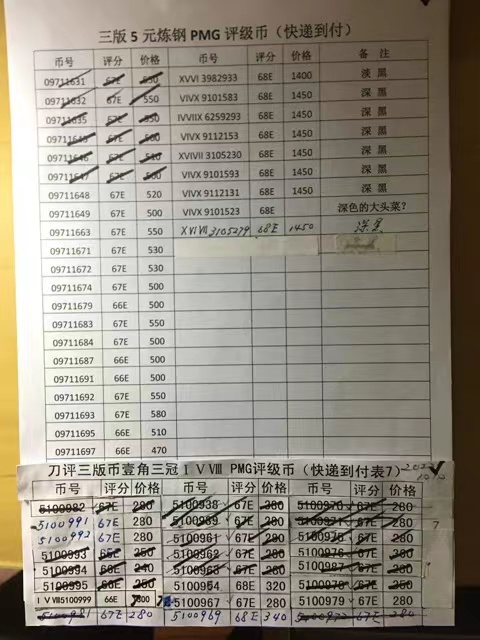 三版5元炼钢PMG评级币（快递到付）
币号 评分 价格 币号 评分 价格 备注
09711631 67E 530 XVVI 3982933 68E 1400 淡黑
09711632 67E 550 VIVX 9101583 68E 1450 深黑
09711635 67E 550 IVVIIX 6259293 68E 1450 深黑
09711645 67E 500 VIVX 9112153 68E 1450 深黑
09711646 67E 510 XVIVII 3105230 68E 1450 深黑
09711647 67E 500 VIVX 9101593 68E 1450 深黑
09711648 67E 520 VIVX 9112131 68E 1450 深黑
09711649 67E 500 VIVX 9101523 68E 深色的大头菜？
09711663 67E 550 XVIVII 3105279 68E 1450 深黑
09711671 67E 530
09711672 67E 530
09711674 67E 500
09711679 66E 500
09711683 67E 550
09711684 67E 500
09711687 66E 500
09711691 66E 500
09711692 67E 550
09711693 67E 580
09711695 66E 510
09711697 66E 470
刀评三版币壹角三冠ⅠⅤⅧ PMG评级币（快递到付表7）
币号 评分 价格 币号 评分 价格 币号 评分 价格
5100982 67E 280 5100938 67E 280 5100970 67E 280
5100991 67E 280 5100959 67E 280 5100971 67E 280
5100992 67E 280 5100961 67E 280 67E 280
5100993 66E 250 5100962 67E 280 5100976 66E
5100994 66E 240 5100963 67E 280 5100987 67E 280
5100995 66E 250 5100964 68E 320 5100978 66E 250
ⅠⅤⅧ5100999 66E 5100967 67E 280 5100979 67E 280
5100981 67E 280 5100969 68E 340 5100972 67E 280